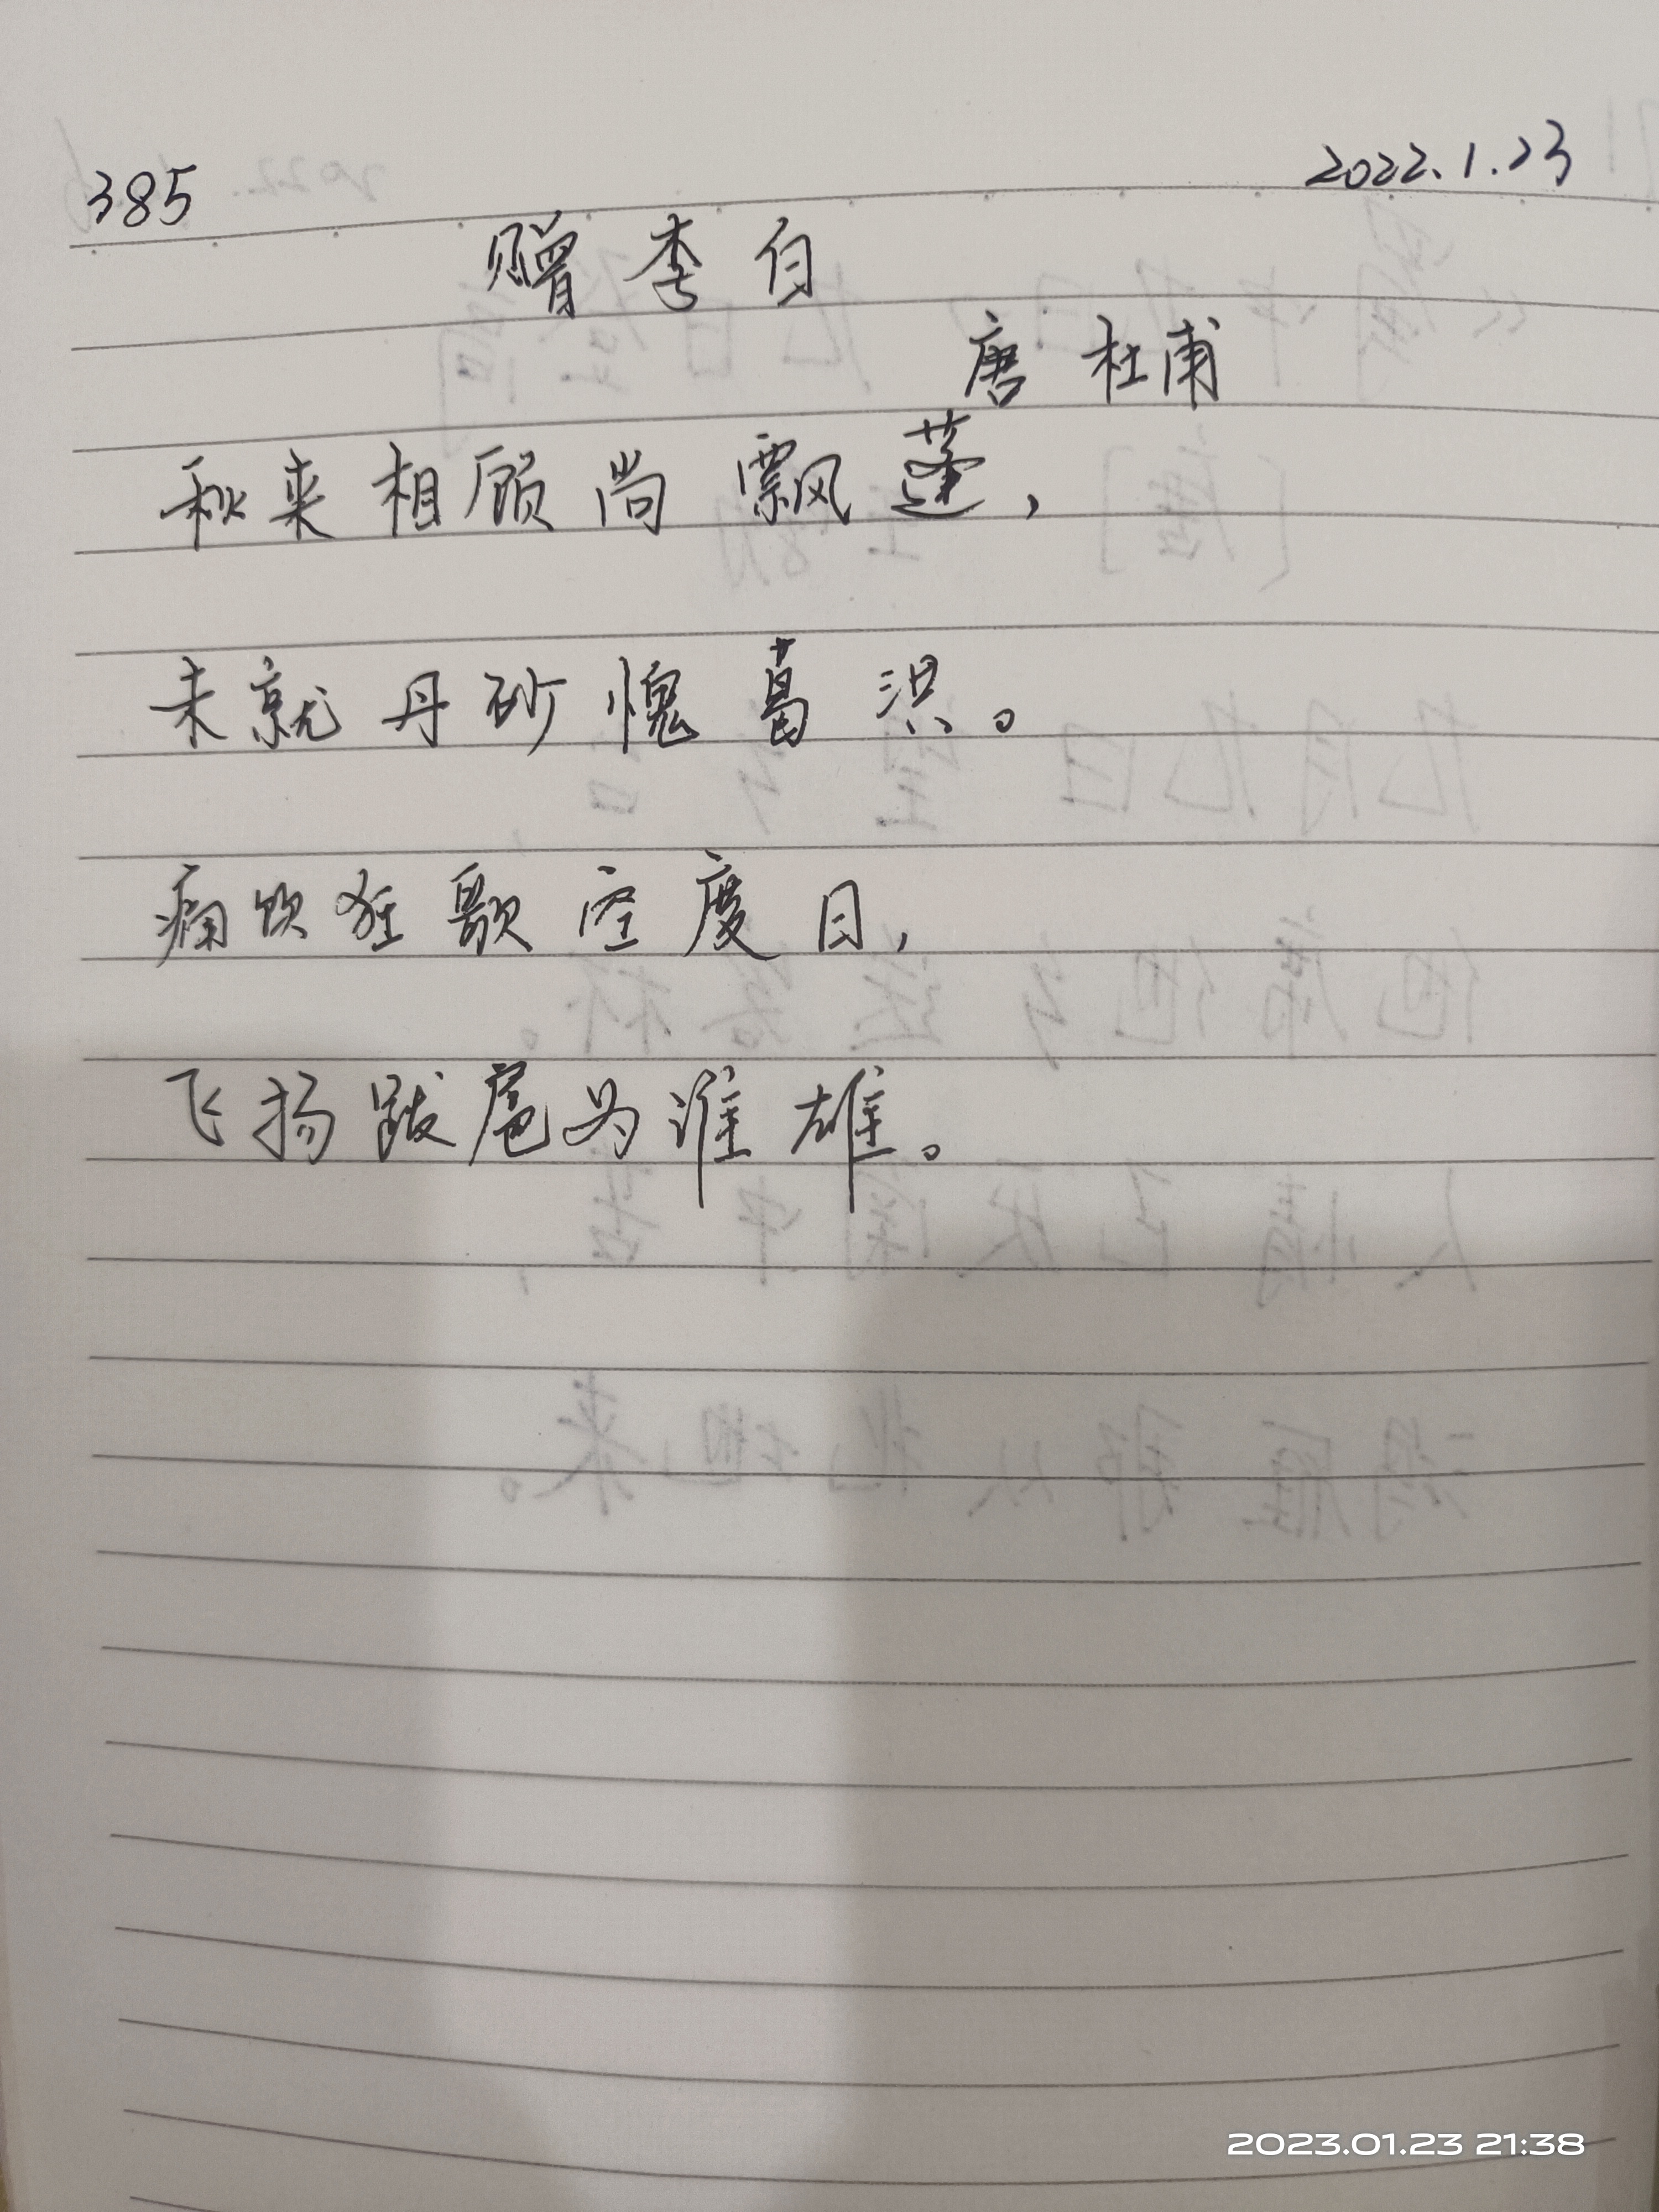 385 2022.1.23
赠李白
唐 杜甫
秋来相顾尚飘蓬，
未就丹砂愧葛洪。
痛饮狂歌空度日，
飞扬跋扈为谁雄。
2023.01.23 21:38